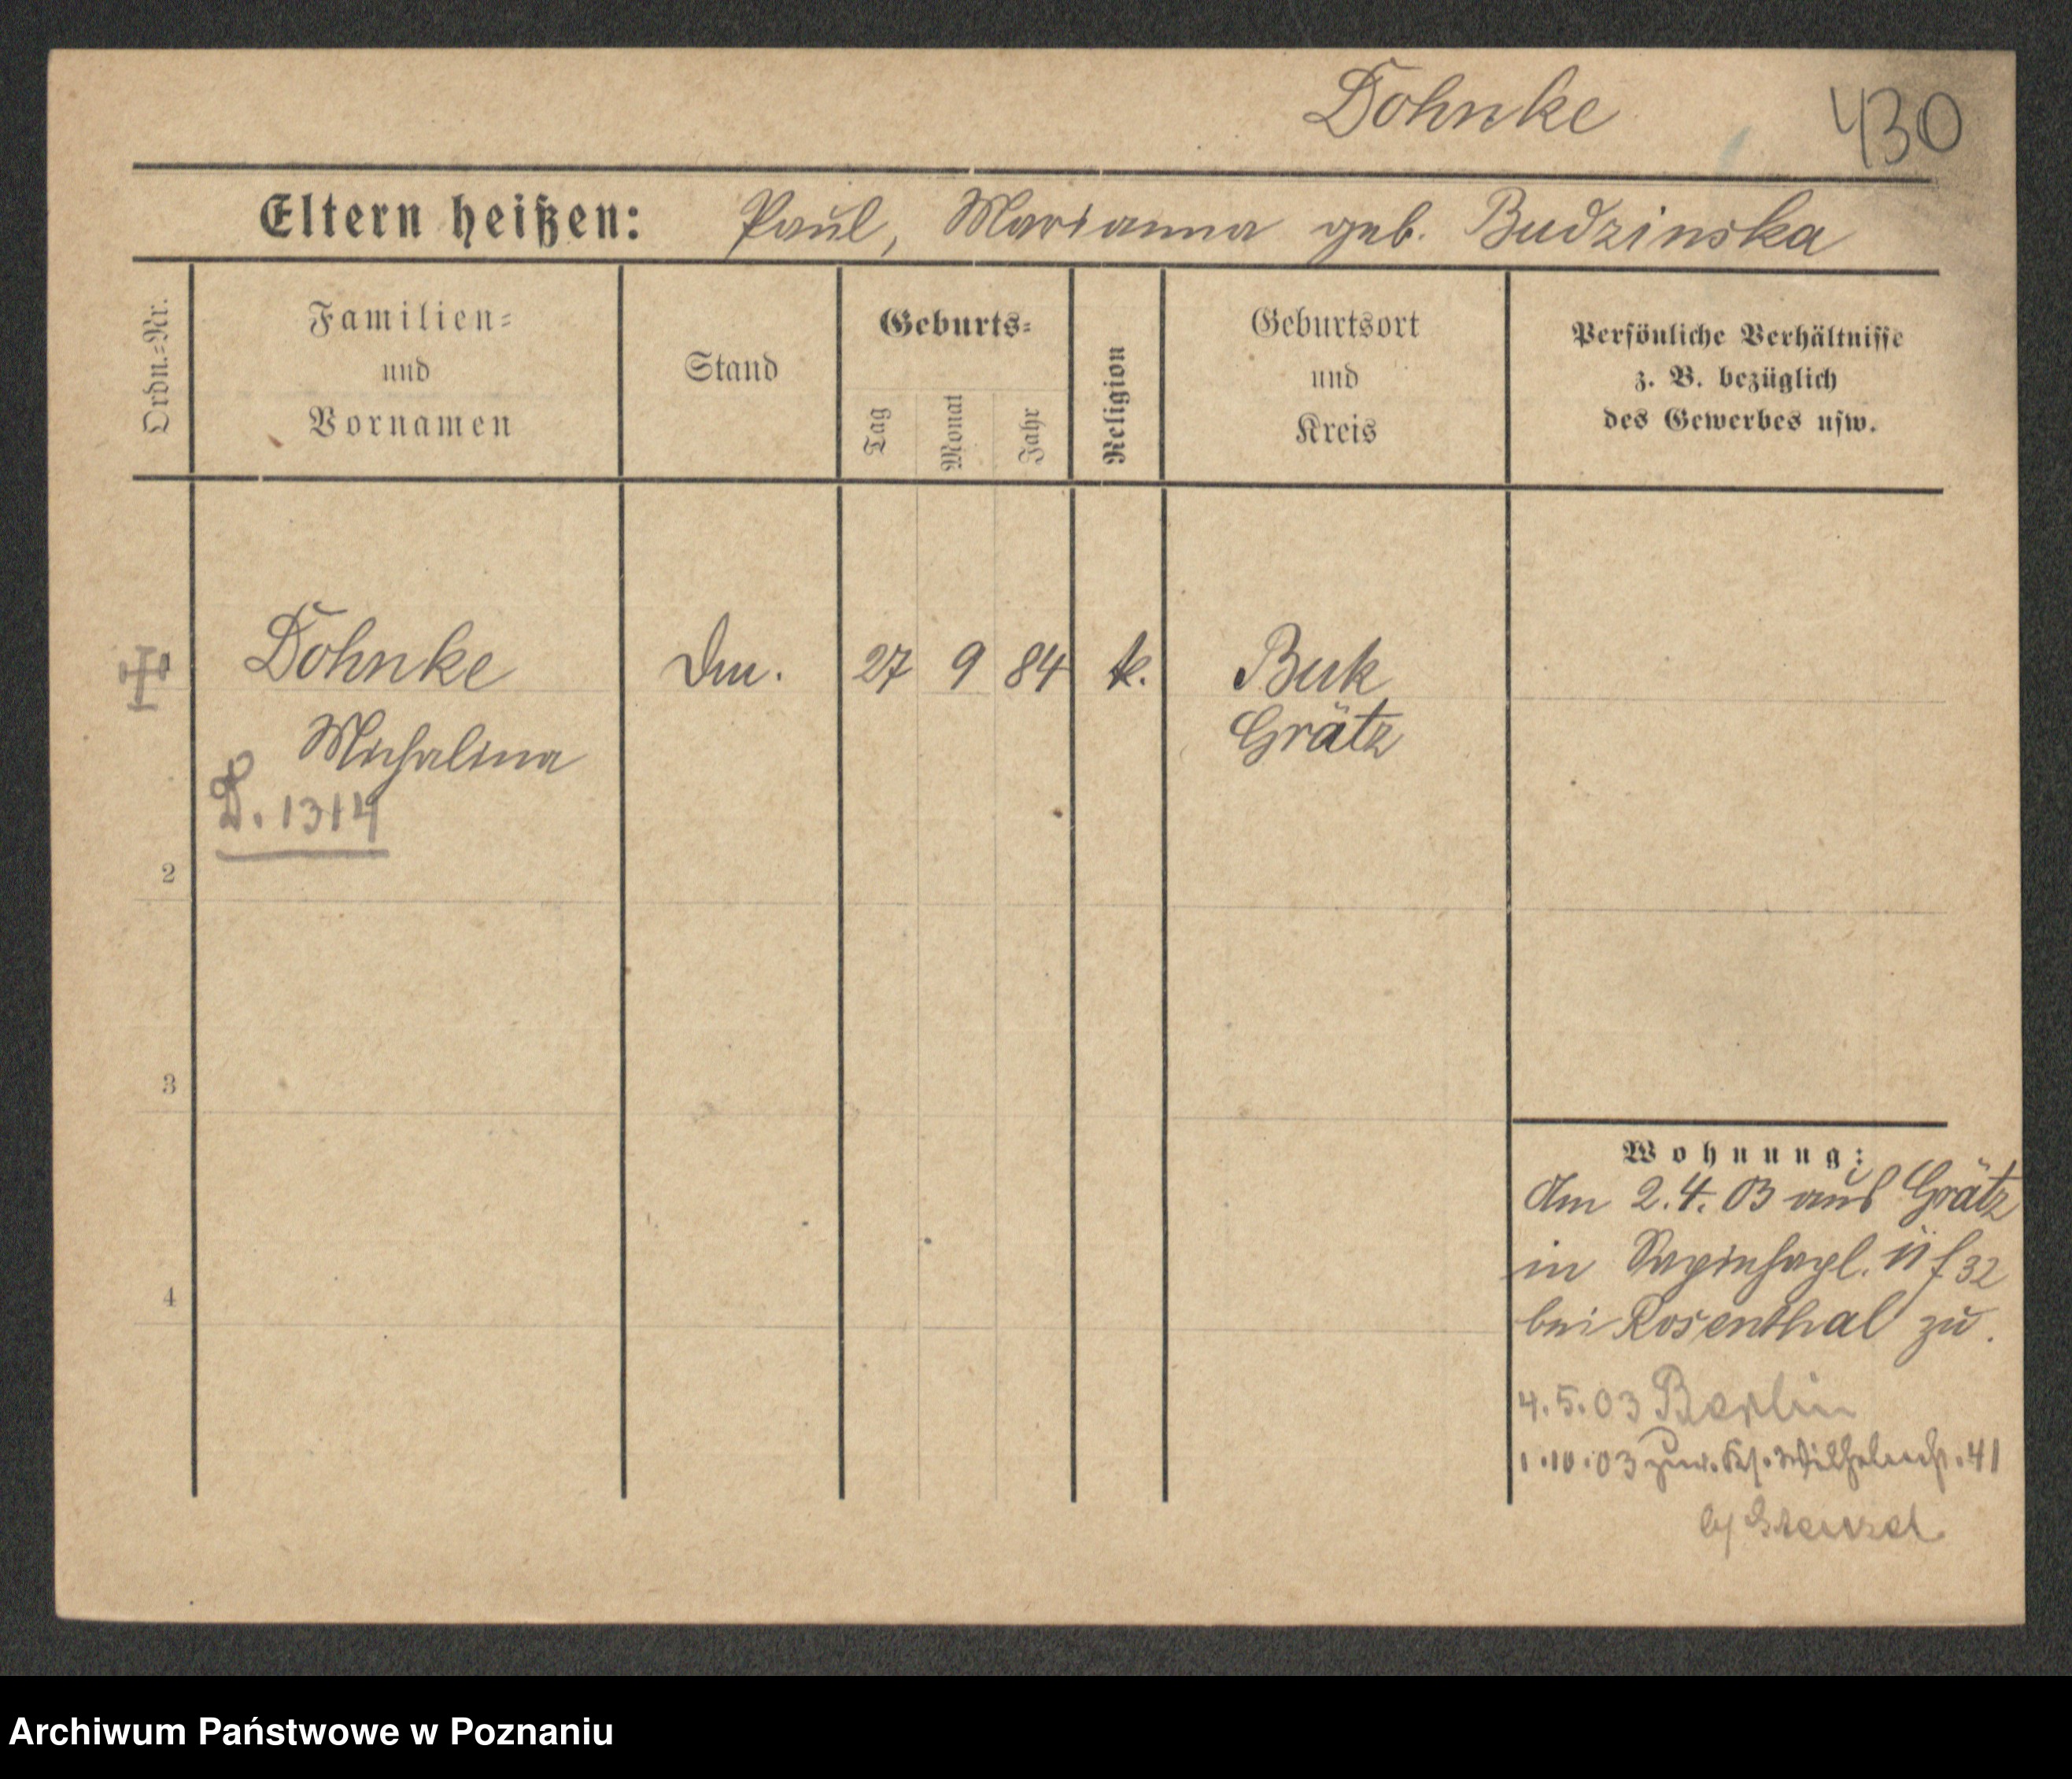 Dohnke 430
Eltern heißen: Paul, Marianna geb. Budzinska
Ordn.=Nr.
Familien=
und
Vornamen
Stand
Geburts=
Tag
Monat
Jahr
Religion
Geburtsort
und
Kreis
Persönliche Verhältnisse
z. B. bezüglich
des Gewerbes usw.
1 Dohnke 27 9 84 k. Buk
Michalina Grätz
D. 1314
2
3
4
Wohnung:
Am 2.4.03 aus Grätz
in 32
bei Rosenthal zu.
4.5.03 Berlin
1.10.03 41
Archiwum Państwowe w Poznaniu